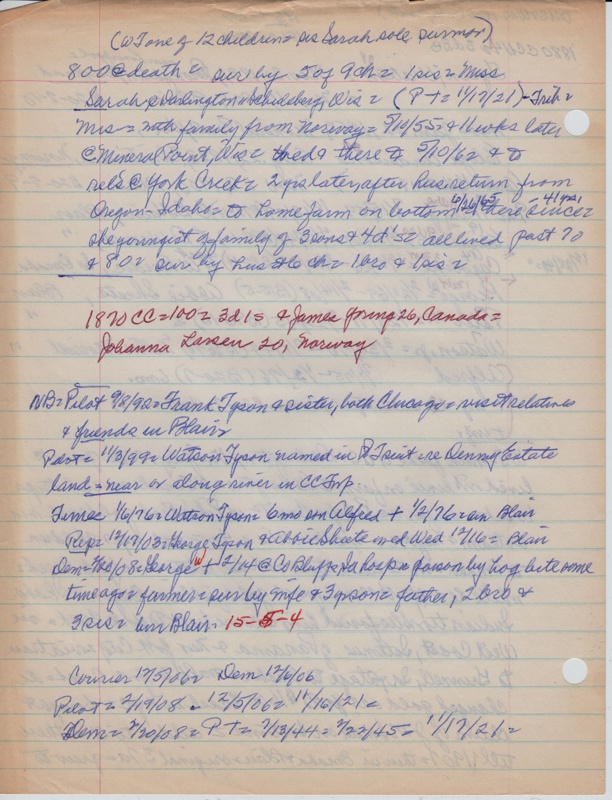 (WT one of 12 children = sis Sarah sole survivor)
80 @ death = sur by 5 of 9 ch = 1 sis = Miss
Sarah @ Darlington Wis = (PT = 11/17/21) - Trib =
Mrs = with family from Norway = 5/19/55 = & 11 wks later
@ Mineral Point, Wis = & there 5/10/62 & to
rels @ York Creek = 2 yrs later, after hus return from
Oregon - Idaho = to home farm on bottom 6/26/65 & there since = 41 yrs,
she youngest of family of 3 sons & 4 d's = all lived past 70
& 80 = sur by hus ch = 1 bro & 1 sis =
1870 CC = 100 = 3 d 1 s & James 26, Canada =
Johanna Larsen 20, Norway
NB = Pilot 9/8/92 = Frank Tyson & sister, both Chicago = visit relatives
& friends in Blair =
Pilot = 11/3/99 = Watson Tyson named in suit = re Denny Estate
land = near or along river in CC Twp.
Times 1/6/76 = Watson Tyson = 6 mo son Alfred + 1/2/76 = in Blair
Rep = 12/17/03 = George Tyson & Abbie md Wed 12/16 = Blair
Dem = /08 = George W + 2/14 @ Co Bluffs Ia hosp = poison by hog bite some
time ago = farmer = sur by wife & 3 sons = father, 2 bro &
3 sis = Blair. 15-5-4
Courier 12/5/06 = Dem 12/6/06
Pilot = 2/19/08 = 12/5/06 = 11/16/21 =
Dem = 2/20/08 = PT = 7/13/44 = 3/22/45 = 11/17/21 =